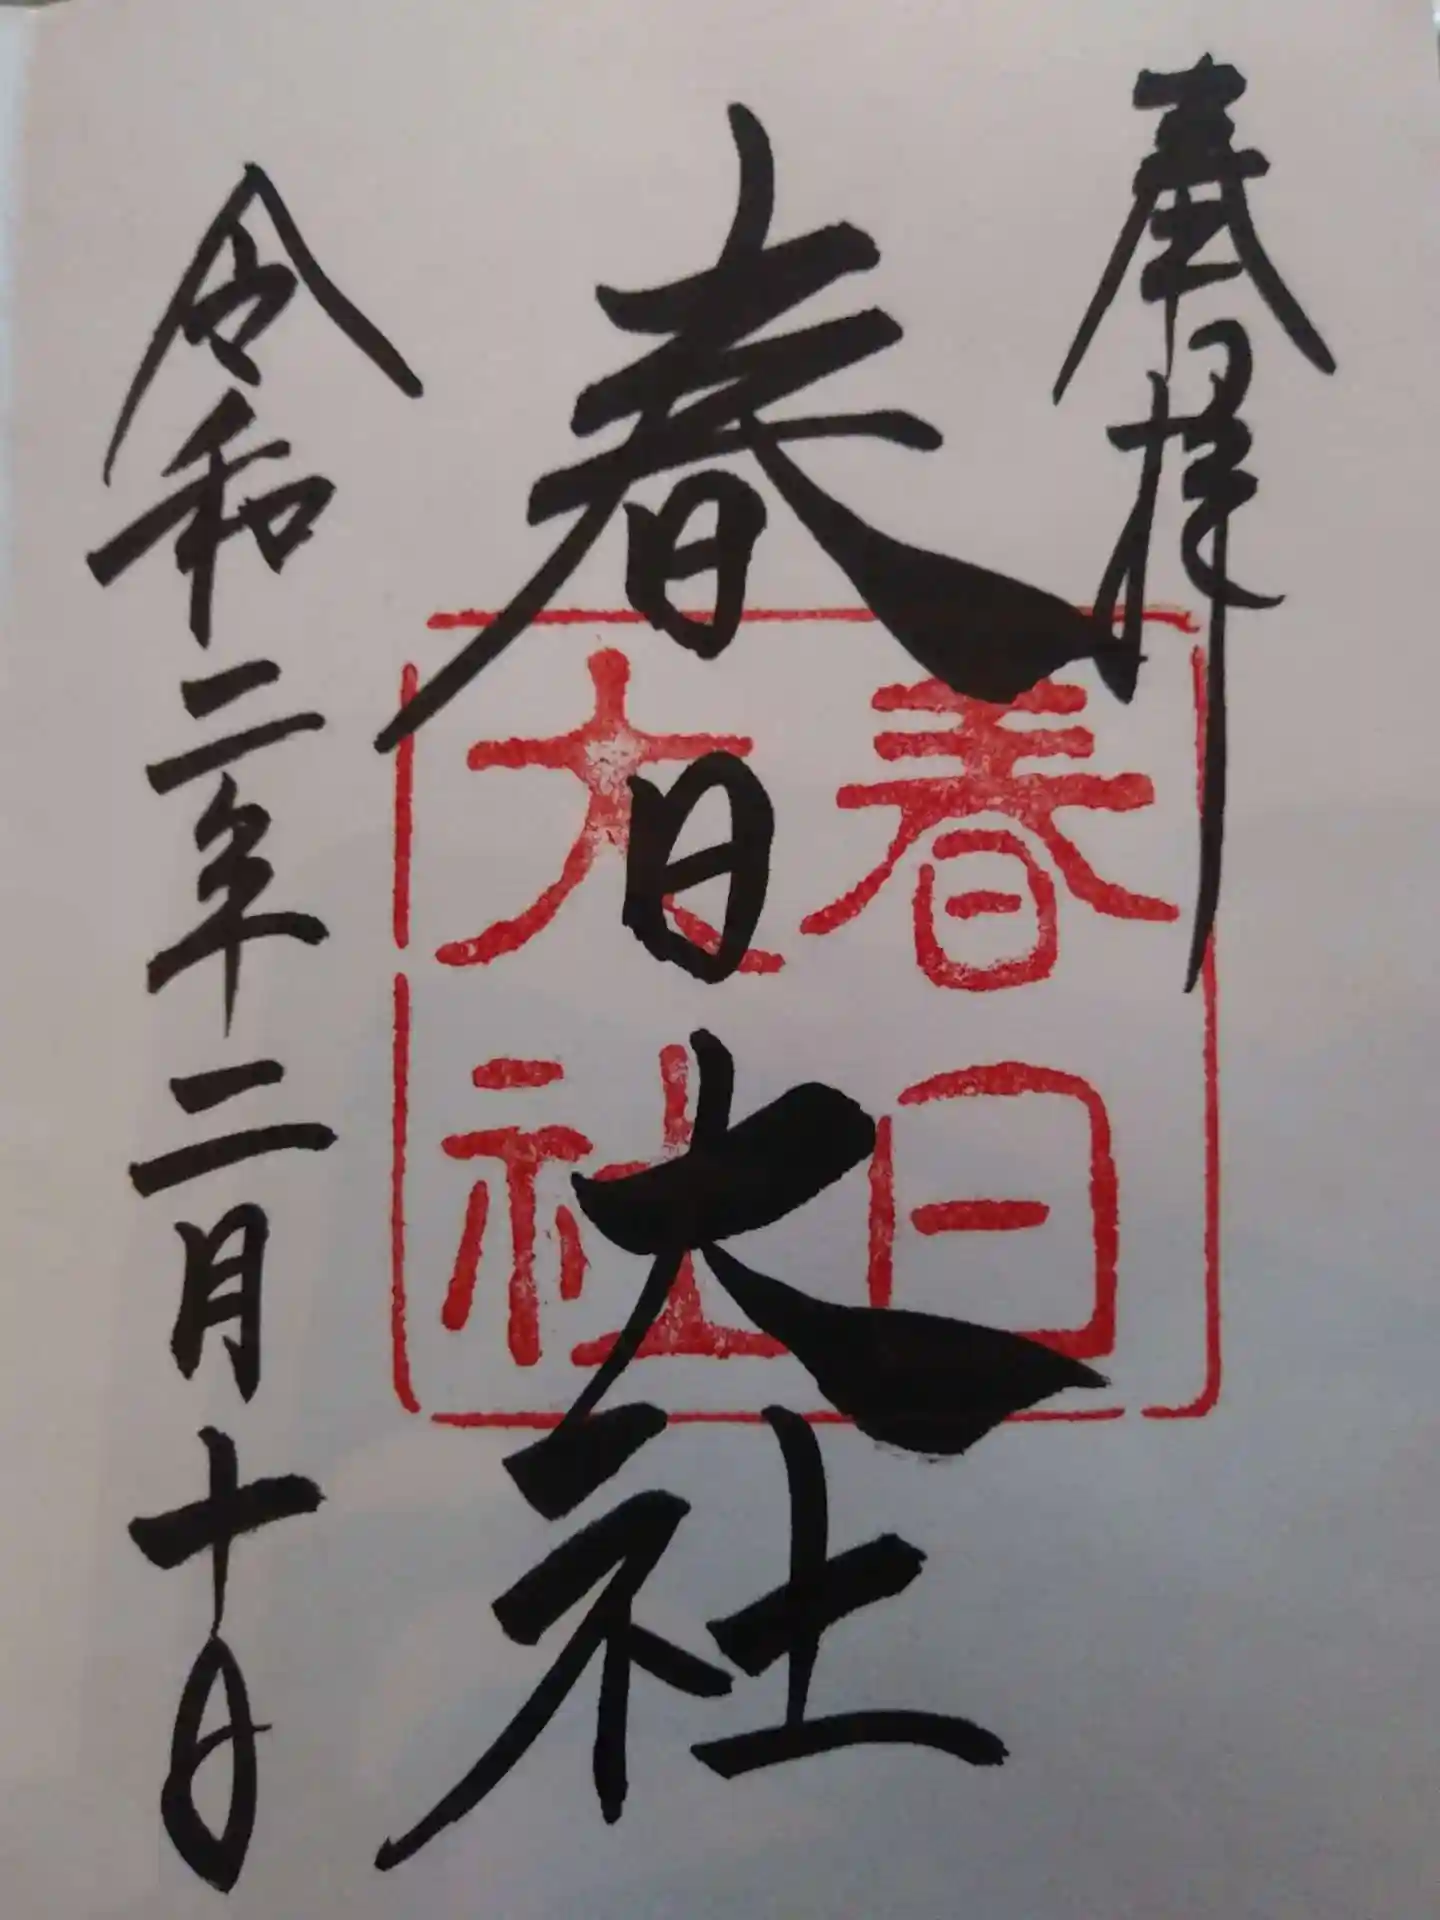 奉拝
春日大社
春日
大社
令和二年二月十日